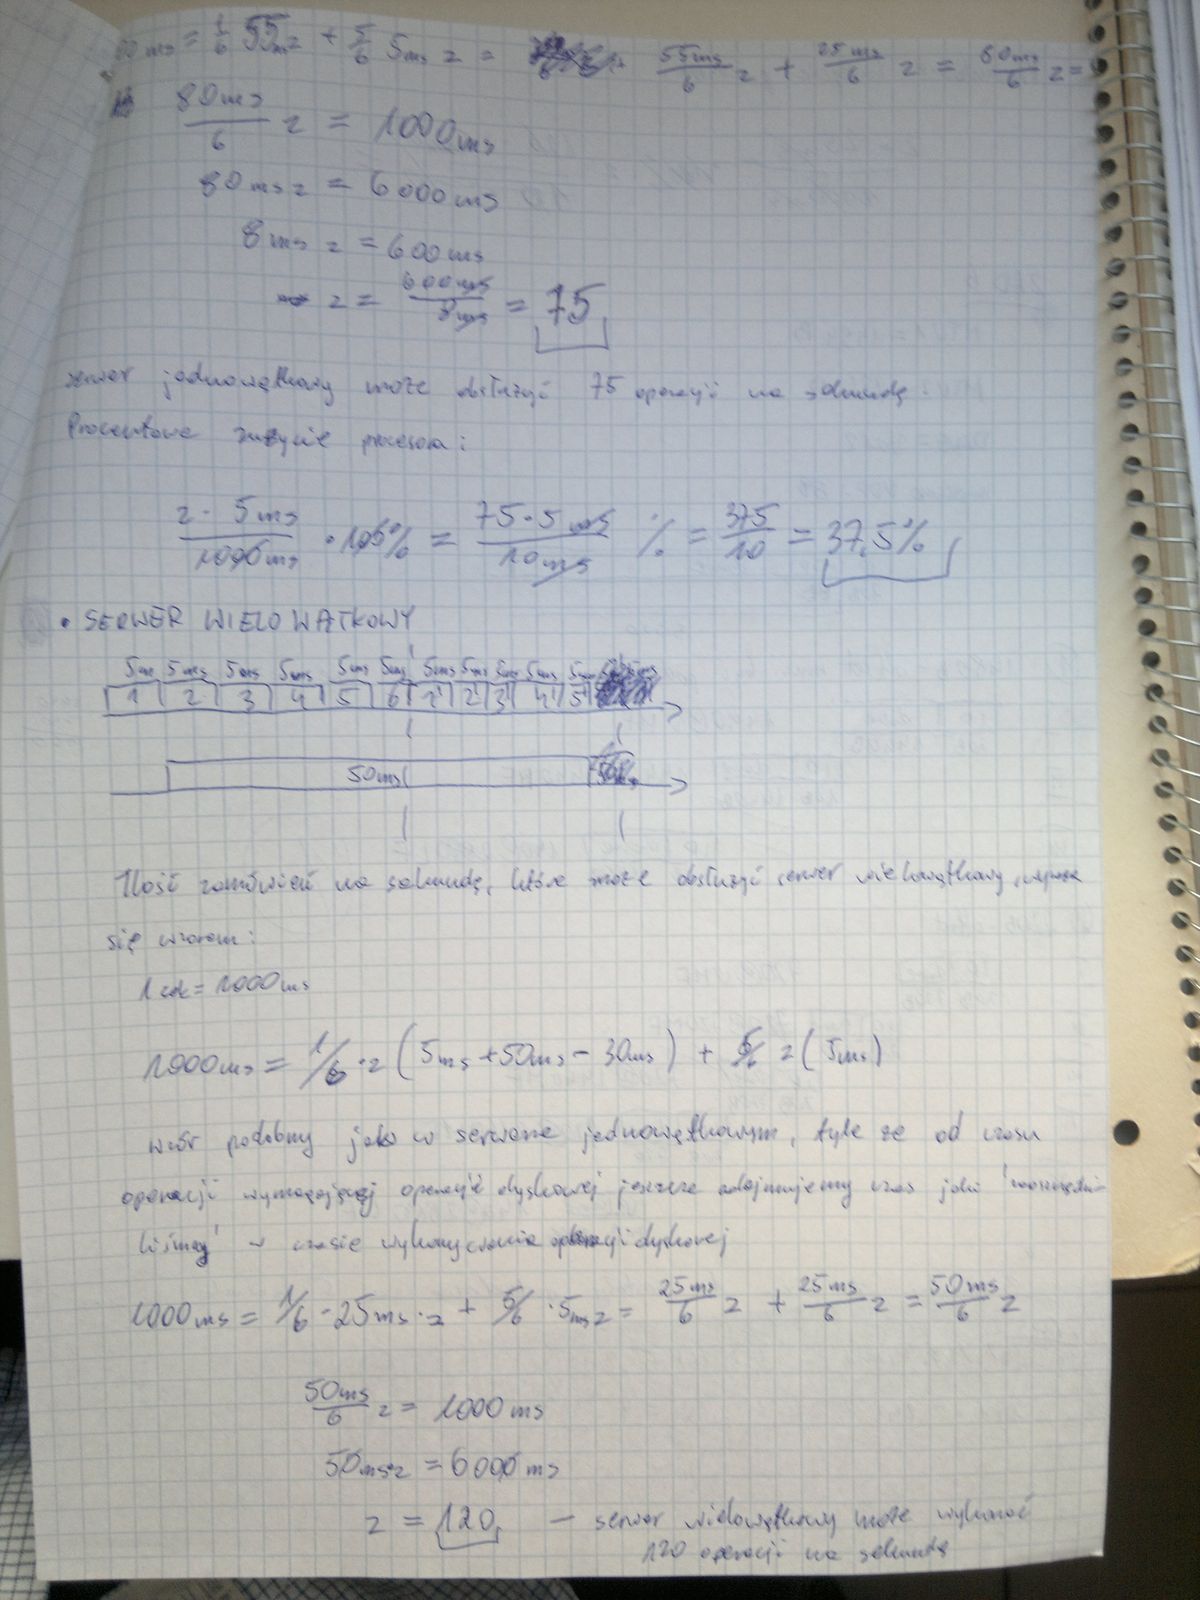 00 ms = 1/6 55ms z + 5/6 5ms z = 55ms/6 z + 25ms/6 z = 80ms/6 z =
80ms/6 z = 1000ms
80ms z = 6000ms
8ms z = 600ms
z = 600ms/8ms = 75
serwer jednowątkowy może obsłużyć 75 operacji na sekundę.
Procentowe zużycie procesora:
z · 5ms/1000ms · 100% = 75·5ms/10ms % = 375/10 = 37,5%
• SERWER WIELOWĄTKOWY
5ms 5ms 5ms 5ms 5ms 5ms 5ms 5ms 5ms 5ms 5ms
1 2 3 4 5 6 1' 2' 3' 4' 5'
50ms
Ilość zamówień na sekundę, które może obsłużyć serwer wielowątkowy, wyraża
się wzorem:
1 sek = 1000ms
1000ms = 1/6 · z (5ms + 50ms - 30ms) + 5/6 z (5ms)
wzór podobny jak w serwerze jednowątkowym, tyle że od czasu
operacji wymagającej operacji dyskowej jeszcze odejmujemy czas jaki 'zaoszczędzi-
liśmy' w czasie wykonywania operacji dyskowej
1000ms = 1/6 · 25ms · z + 5/6 · 5ms z = 25ms/6 z + 25ms/6 z = 50ms/6 z
50ms/6 z = 1000ms
50ms·z = 6000ms
z = 120 – serwer wielowątkowy może wykonać
120 operacji na sekundę